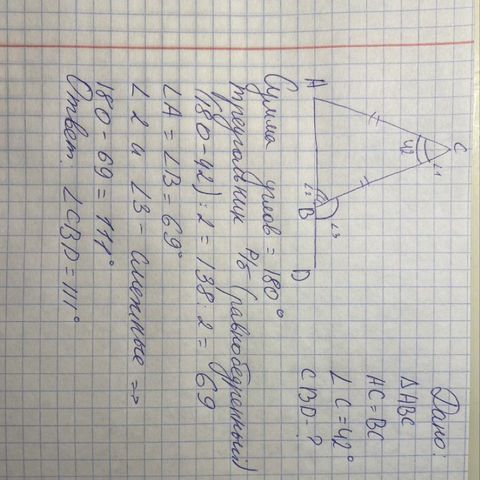 Дано:
△ABC
AC = BC
∠C = 42°
CBD - ?
C
42
∠1
A
∠2
B
∠3
D
Сумма углов = 180°
треугольник р/б (равнобедренный)
(180 - 42) : 2 = 138 : 2 = 69
∠A = ∠B = 69°
∠2 и ∠3 - смежные =>
180 - 69 = 111°
Ответ: ∠CBD = 111°